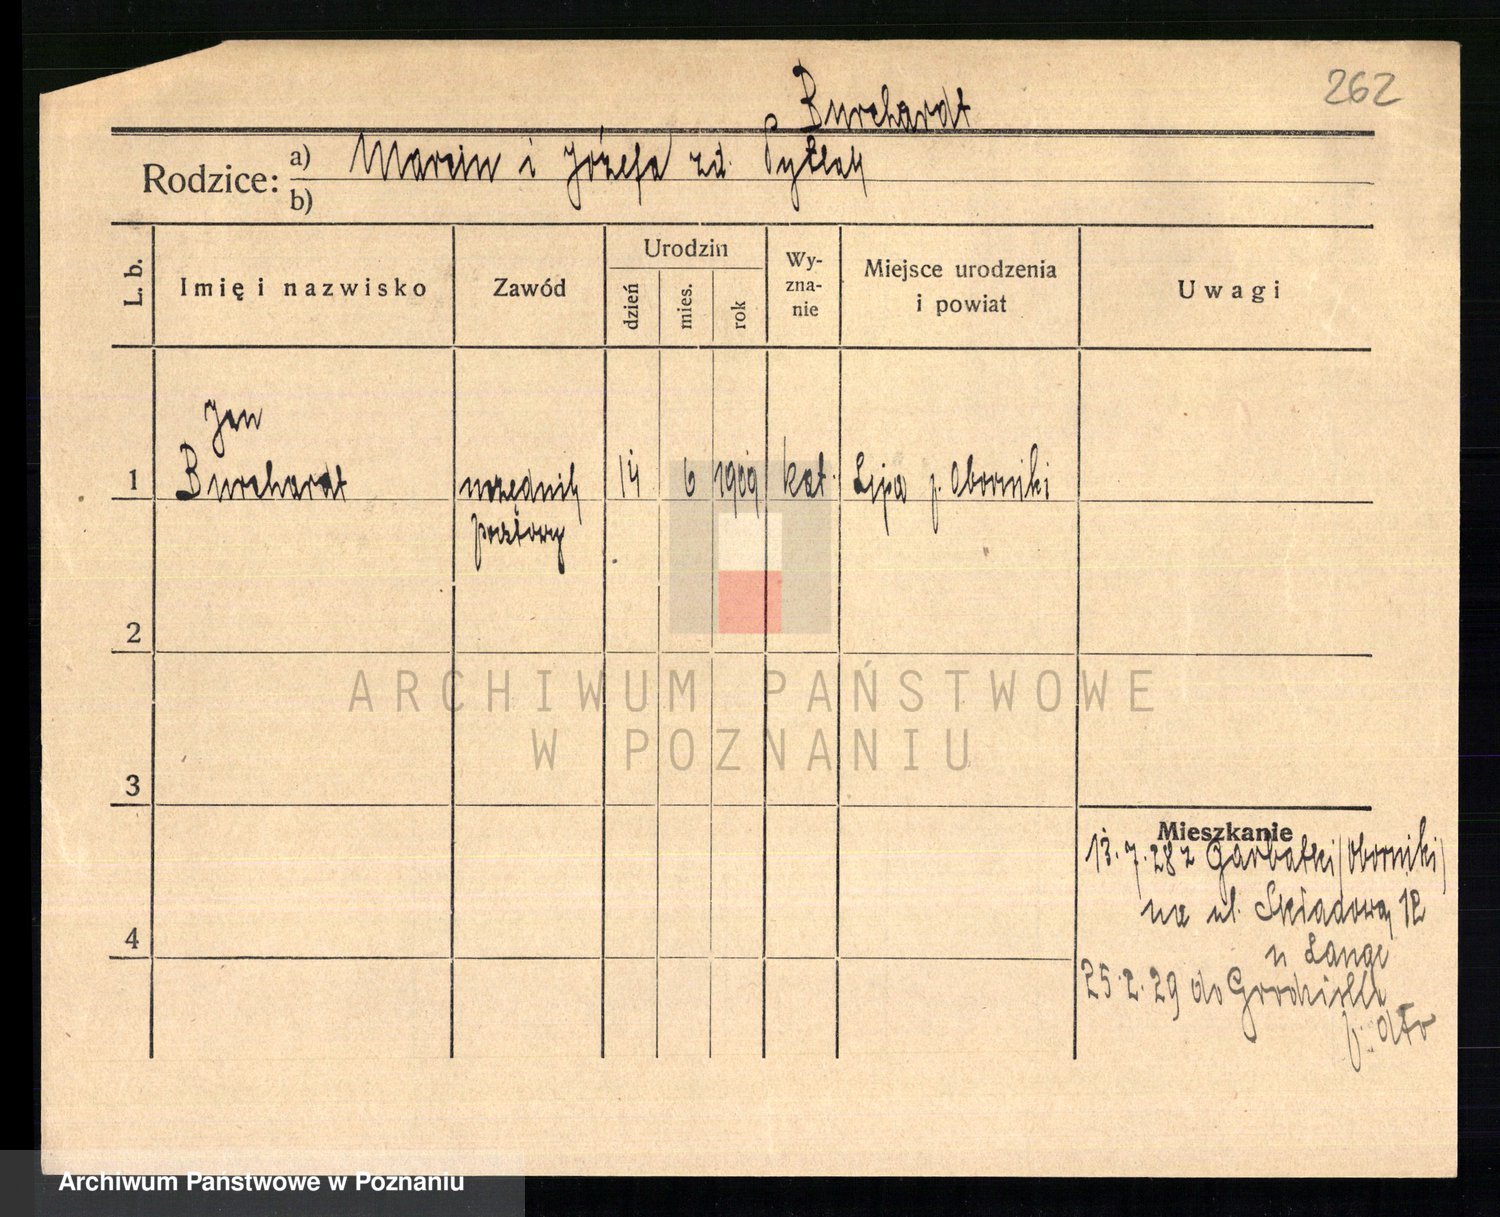 262
Burchardt
Rodzice: a) Marcin i Józefa zd. Pytlak
b)
L. b. Imię i nazwisko Zawód Urodzin dzień mies. rok Wyznanie Miejsce urodzenia i powiat Uwagi
Jan
1 Burchardt urzędnik 14 6 1909 kat. Lipa p. Oborniki
pocztowy
2
ARCHIWUM PAŃSTWOWE
W POZNANIU
3
Mieszkanie
13.7.28 z Garbatki /Oborniki/
na ul. Składową 12
u Lange
4
25.2.29 do Grodziska
p. dto
Archiwum Państwowe w Poznaniu